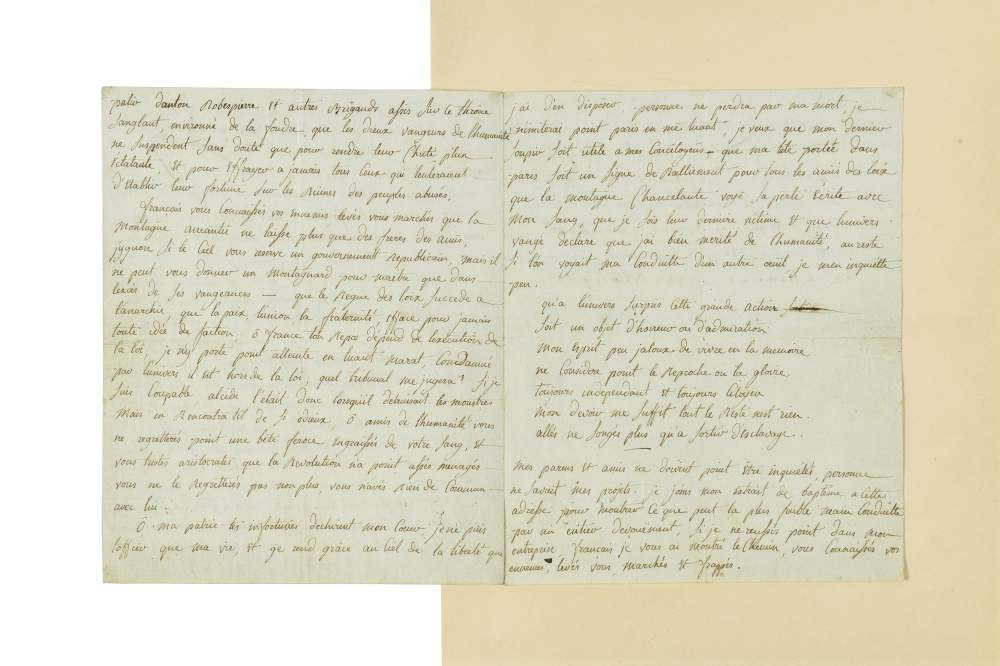 pativ danton Robespierre et autres Brigands assis sur le thrône
sanglant, environné de la foudre, que les dieux vangeurs de lhumanité
ne suspendent sans doute que pour rendre leur chute plus
éclatante, et pour effrayer a jamais tous ceux qui tenteraient
d'établir leur fortune sur les Ruines des peuples abusés.
français vous connaissés vos ennemis levés vous marchés que la
montagne anéantie ne laisse plus que des freres des amis,
jygnore si le Ciel vous reserve un gouvernement Republicain, mais il
ne peut vous donner un montagnard pour maître que dans
lexcés de ses vangeances — que le Regne des loix succede a
l'anarchie, que la paix lunion la fraternité efface pour jamais
toute idée de faction. ô france ton Repos dépend de lexécution de
la loi, je ny porte point atteinte en tuant marat, Condamné
par lunivers il est hors de la loi, quel tribunal me jugera? Si je
suis Coupable alcide l'était donc lorsquil détruisait les monstres
mais en Rencontra til de si odieux. ô amis de lhumanité vous
ne regretterés point une bête feroce engraissée de votre Sang, et
vous tristes aristocrates que la Revolution na point assés menagés
vous ne le Regretterés pas non plus, vous navés rien de Commun
avec lui.
Ô ma patrie tes infortunes déchirent mon Coeur, Je ne puis
toffrir que ma vie, et je rend grâce au Ciel de la liberté que
j'ai d'en disposer, personne ne perdra par ma mort, je
nimiterai point paris en me tuant, je veux que mon dernier
soupir soit utile a mes Concitoyens, que ma tête portée dans
paris soit un signe de Ralliement pour tous les amis des loix
que la montagne Chancelante voye sa perte écrite avec
mon Sang, que je sois leur derniere victime et que lunivers
vangé déclare que jai bien mérité de lhumanité, au reste
si lon voyait ma Conduitte dun autre oeuil je men inquiètte
peu.
qu'a lunivers surpris cette grande action
soit un objet d'horreur ou d'admiration
mon esprit peu jaloux de vivre en la memoire
ne Considère point le Reproche ou la gloire
toujours independant et toujours Citoyen
mon devoir me suffit tout le Reste nest rien.
allés ne songés plus qu'a sortir d'esclavage.
mes parens et amis ne doivent point être inquiétés, personne
ne savait mes projets. je joins mon extrait de baptême a cette
adresse pour montrer ce que peut la plus faible main Conduitte
par un entier dévouement, Si je ne reussis point dans mon
entreprise, français je vous ai montré le Chemin, vous Connaissés vos
ennemis, levés vous, marchés et frappés.